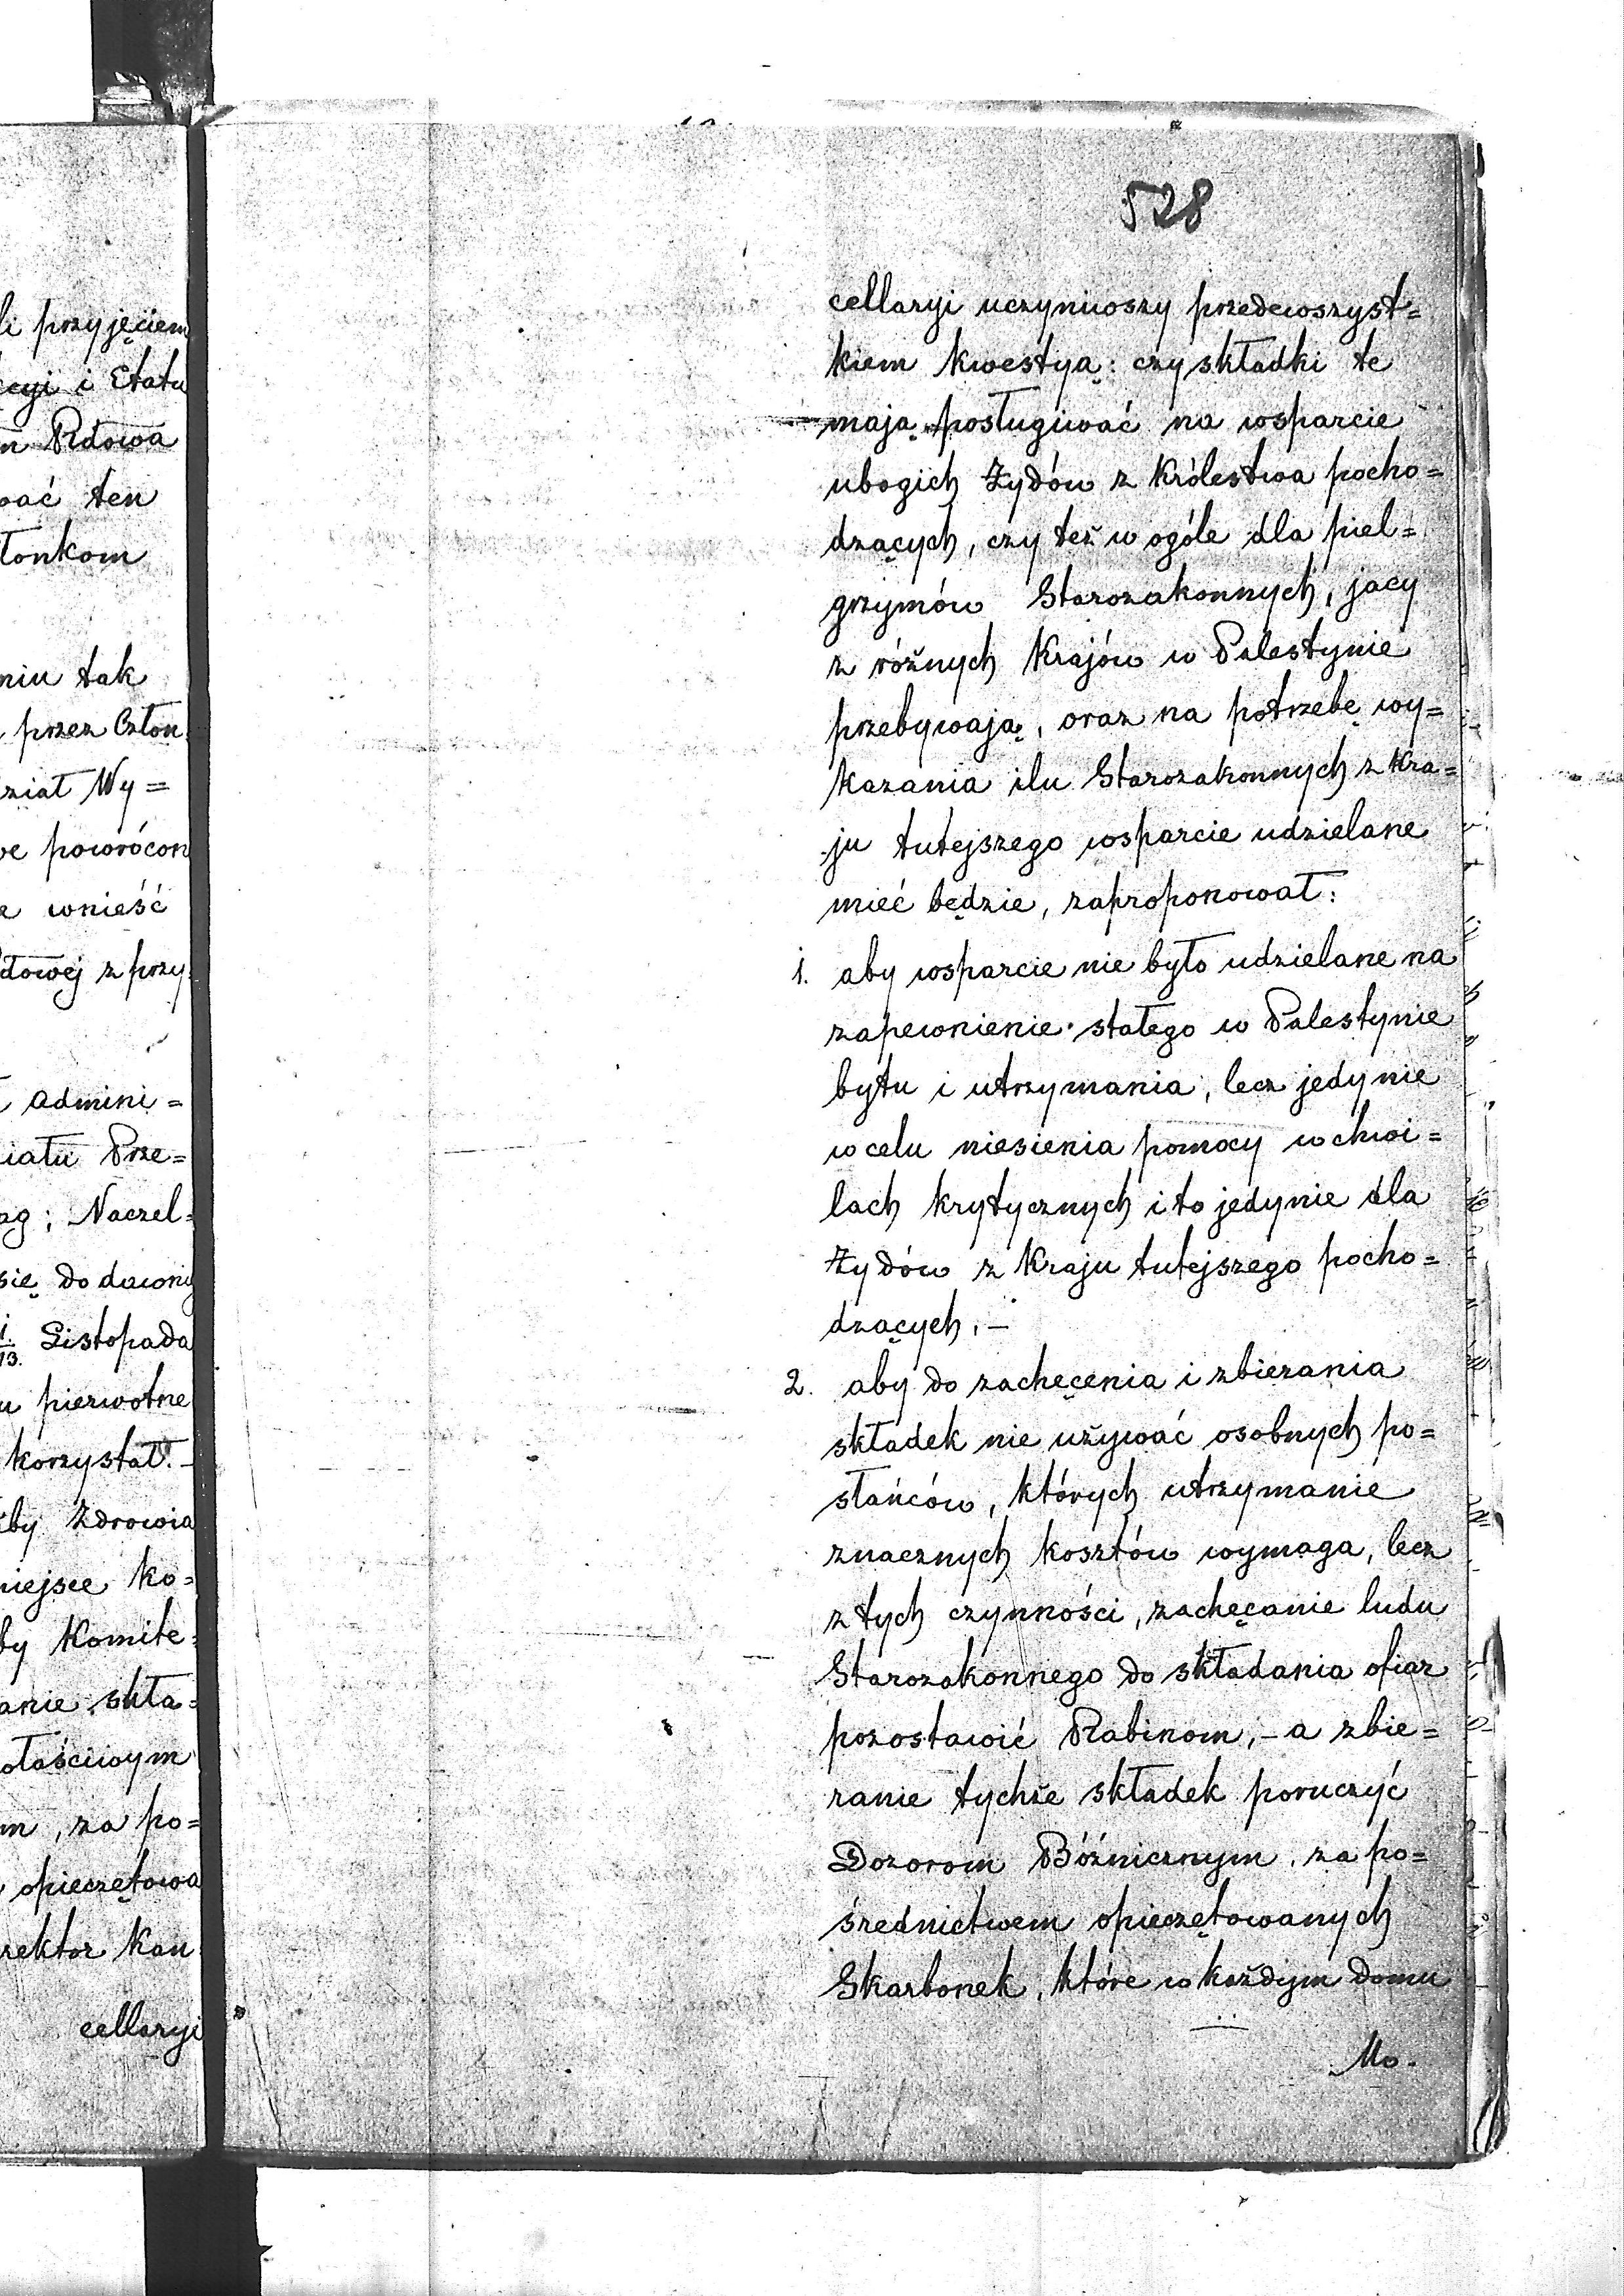 li przyjęciem
cyi i Etatu
n Rdowa
wać ten
łonkom
niu tak
przez Człon
ział Wy=
we powrócon
e wnieść
dowej z przy
admini=
iału Prze=
ag; Naczel=
się do dawny
1/13. Listopada
u pierwotne
korzystał.-
by Zdrowia
miejsce ko=
by Komite=
anie skła=
właściwym
m, za po=
opieczętowa
rektor Kan
cellaryi
528
cellaryi uczyniwszy przedewszyst=
kiem kwestyą: czy składki te
mają posługiwać na wsparcie
ubogich Żydów z Królestwa pocho=
dzących, czy też w ogóle dla piel=
grzymów Starozakonnych, jacy
z różnych Krajów w Palestynie
przebywają, oraz na potrzebę wy=
kazania ilu Starozakonnych z Kra=
ju tutejszego wsparcie udzielane
mieć będzie, zaproponował:
1. aby wsparcie nie było udzielane na
zapewnienie stałego w Palestynie
bytu i utrzymania, lecz jedynie
w celu niesienia pomocy w chwi=
lach krytycznych i to jedynie dla
Żydów z Kraju tutejszego pocho=
dzących,-
2. aby do zachęcenia i zbierania
składek nie używać osobnych po=
słańców, których utrzymanie
znacznych kosztów wymaga, lecz
z tych czynności, zachęcanie ludu
Starozakonnego do składania ofiar
pozostawić Rabinom,- a zbie=
ranie tychże składek poruczyć
Dozorom Bóźnicznym, za po=
średnictwem opieczętowanych
Skarbonek, które w każdym domu
Mo.